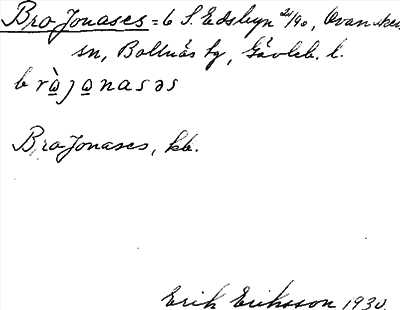 Bro Jonases = 6 S. Edsbyn 21/90, Ovanåkers
sn, Bollnäs tg, Gävleb. l.
bròjonasəs
Bro Jonases, kb.
Erik Eriksson 1930.